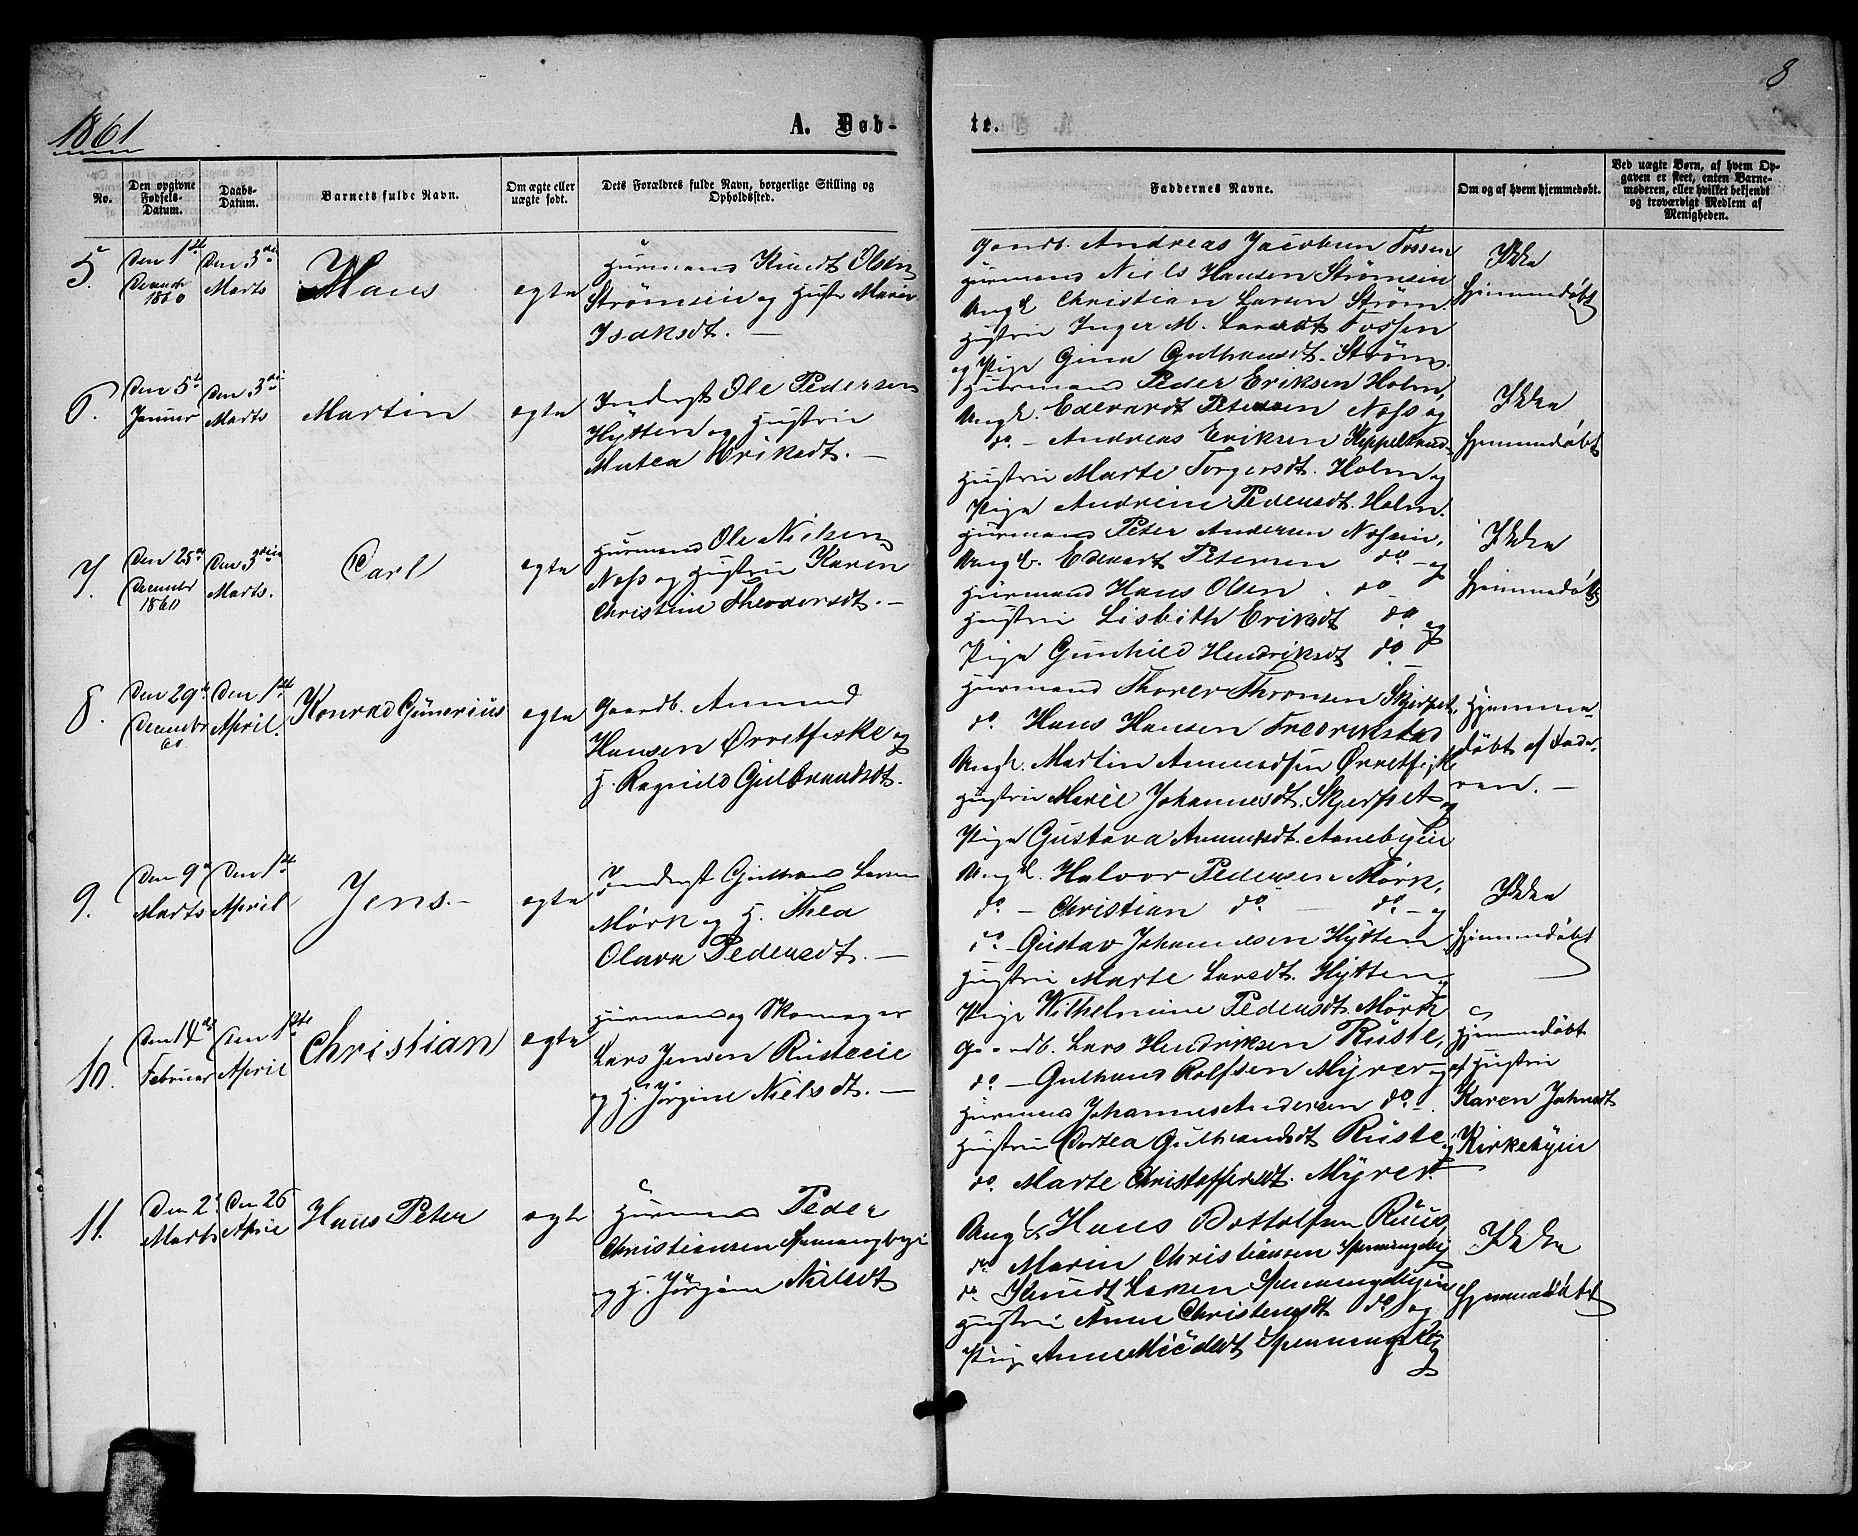 8
1861
A. Døb-
te.
No.
Den opgivne Fødsels-Datum.
Daabs-Datum.
Barnets fulde Navn.
Om ægte eller uægte født.
Dets Forældres fulde Navn, borgerlige Stilling og Opholdssted.
Faddernes Navne.
Om og af hvem hjemmedøbt.
Ved uægte Børn, af hvem Opgaven er skeet, enten Barnemoderen, eller hvilket bekjendt og troværdigt Medlem af Menigheden.
5.
Den 1ste
December
1860
Den 3die
Marts
Hans
ægte
Huusmand Knudt Olsen
Strømseie og Hustr Maria
Isaksdt. —
Gaardb. Andreas Jacobsen Fossen
Huusmand Niels Hansen Strømseie
Ungk Christian Larsen Strøm.
Hustrue Inger M. Larsdt Fossen
og Pige Gina Gulbransdt. Strøm.
Ikke
hjemmedøbt
6.
Den 5te
Januar
Den 3die
Marts
Martin
ægte
Inderst Ole Pedersen
Hytten og Hustrue
Mutea Eriksdt. —
Huusmand Peder Eriksen Holm,
Ungk. Edevardt Petersen Næss og
do. - Andreas Eriksen
Hustrue Marte Torgersdt. Holm og
Pige Andrine Pedersdt. Holm.
Ikke
hjemmedøbt
7.
Den 25de
December
1860
Den 3die
Marts.
Carl
ægte
Huusmand Ole Nielsen
Næss og Hustrue Karen
Christine Theodorsdt. —
Huusmand Peter Andersen Næseie,
Ungk. Edevart Petersen do - og
Huusmand Hans Olsen . do -
Hustrue Lisbith Eriksdt do og
Pige Gunhild Hendriksdt do -
Ikke
hjemmedøbt
8.
Den 29de
December
60
Den 1ste
April.
Konrad Gunerius
ægte
Gaardb. Amund
Hansen Ørretfiske og
H. Ragnild Gulbrandsdt.
Huusmand Thorer Thronsen Skjerpet,
do. Hans Hansen Fredrikstad
Ungk. Martin Amundsen Ørretfisk
Hustrue Marie Johannesdt. Skjerpet og
Pige Gustava Amundsdt. Aanebyeie
Hjemme-
døbt af Fade-
ren. —
9.
Den 9de
Marts
Den 1ste
April
Jens. -
ægte
Inderst Gulbrand Larsen
Mørk og H. Thea
Olava Pedersdt. —
Ungk. Halvor Pedersen Mørk,
do. - Christian do. — do. - og
do - Gustav Johannesen Hytten
Hustrue Marte Larsdt. Hytten og
Pige Wilhelmine Pedersdt. Mørk
Ikke
hjemmedøbt
10.
Den 14de
Februar
Den 1ste
April
Christian
ægte
Huusmand og Skomager
Lars Jensen Rusteeie
og H. Jørgine Nielsdt. —
Gaardb. Lars Hendriksen Ruste,
do - Gulbrand Rolfsen Myrer og
Huusmand Johannes Andersen do. -
Hustrue Dortea Gulbrandsdt Ruste og
do. Marte Christoffersdt. Myrer.
Hjemmedøbt
af Hustrue
Karen Johnsdt
Kirkebyeie
11.
Den 2
Marts
Den 26
April
Hans Peter
ægte
Huusmand Peder
Christiansen
og H. Jørgine Nilsdt
Ungk Hans Bottolfsen Ruus,
do. Marin Christiansen
do. Knudt Larsen
Hustrue Anne Christensdt do. og
Pige Anne
Ikke
hjemmedøbt